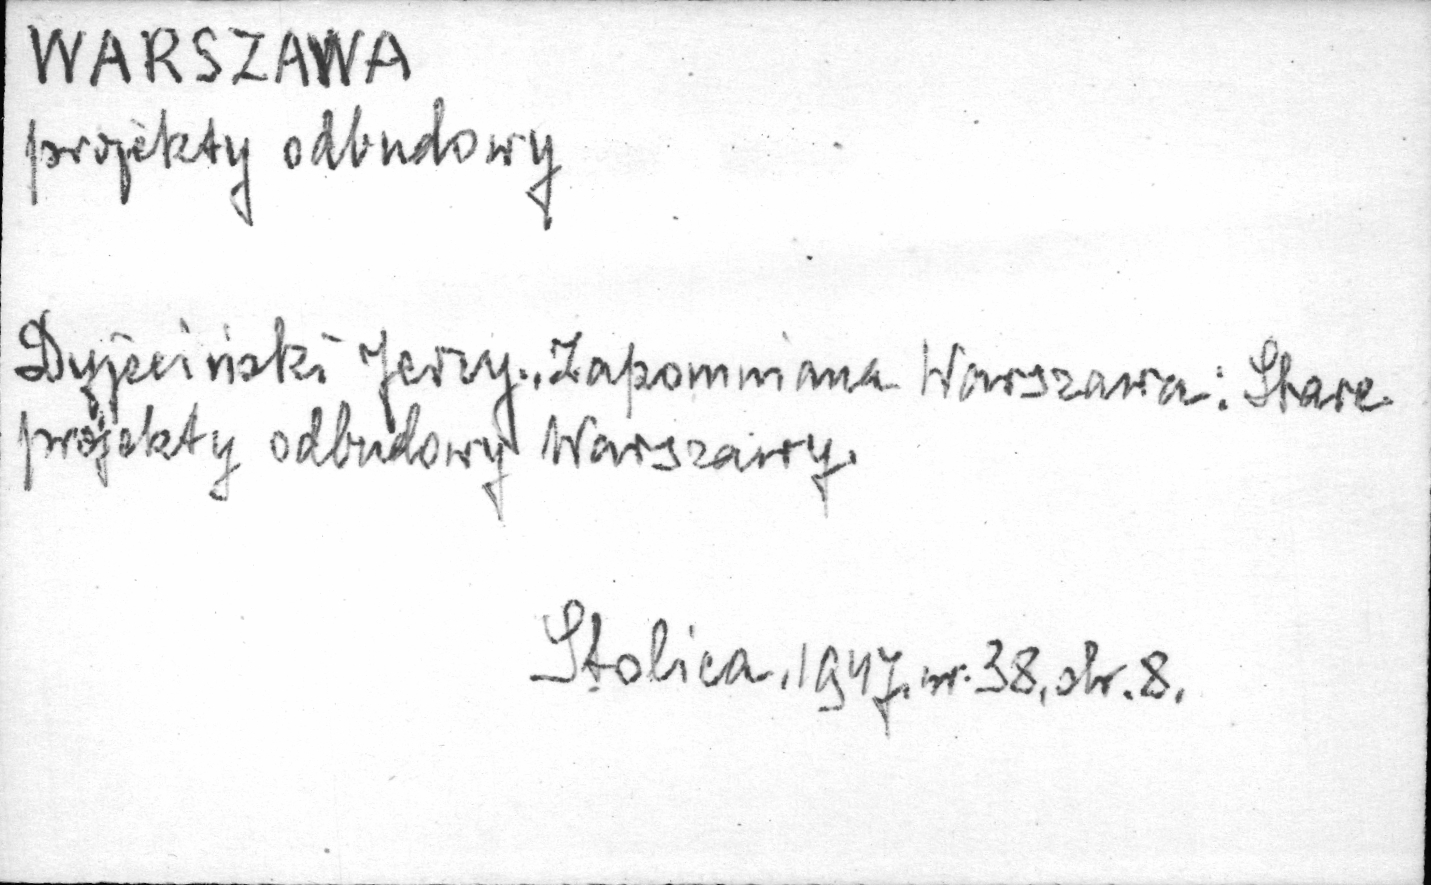 WARSZAWA
projekty odbudowy
Dyjeciński Jerzy., Zapomniana Warszawa: Stare
projekty odbudowy Warszawy.
Stolica, 1947, nr. 38, str. 8.